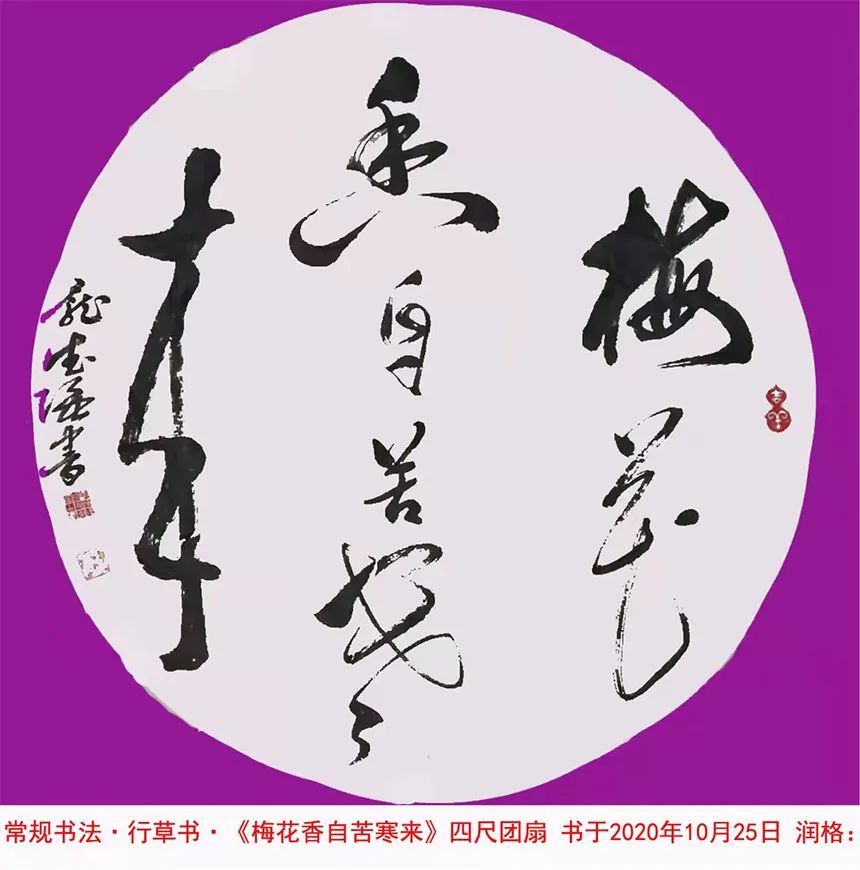 梅花
香自苦寒
来
龙德隐书
常规书法·行草书·《梅花香自苦寒来》四尺团扇 书于2020年10月25日 润格: